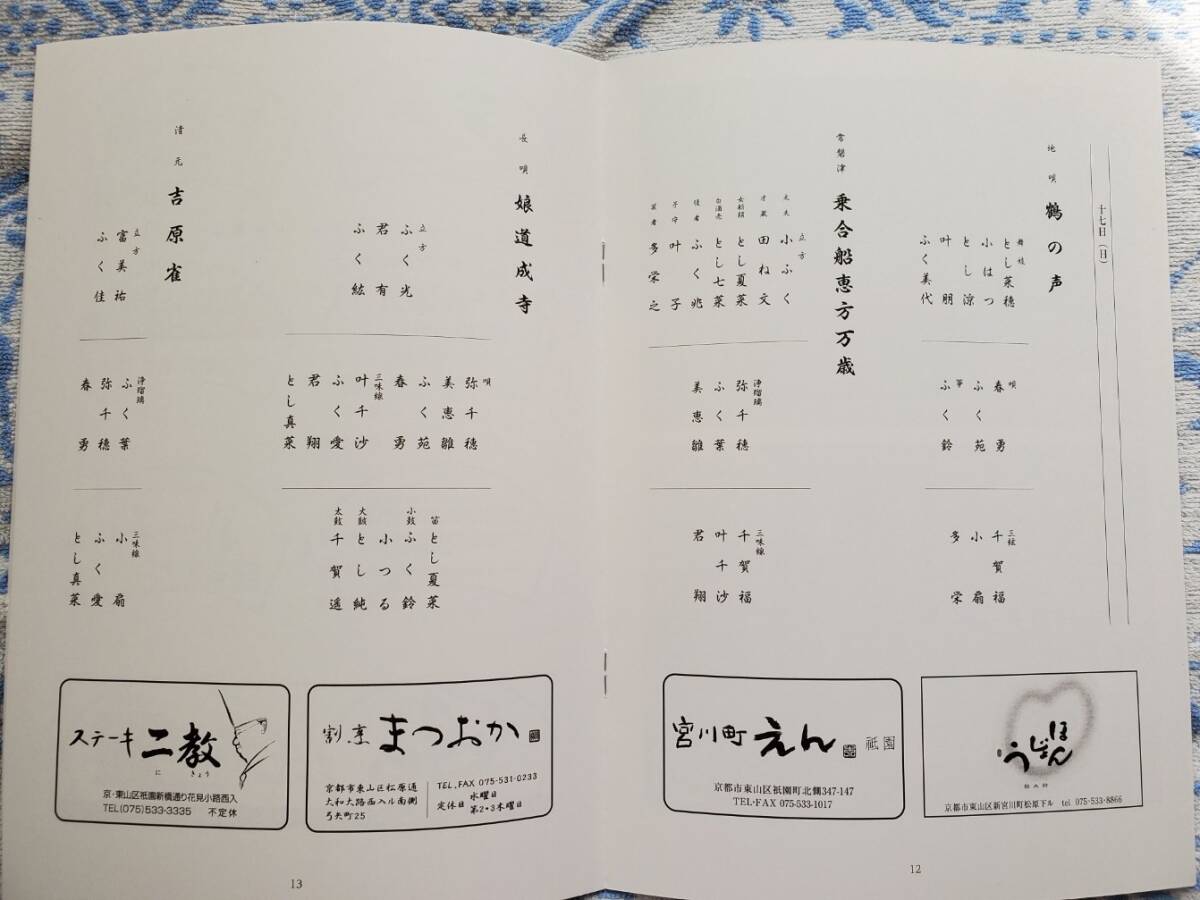 十七日（日）
地唄
鶴の声
舞妓
とし菜穂
小はつ
とし涼
叶朋
ふく美代
唄
春勇
ふく苑
箏
ふく鈴
三絃
千賀福
小扇
多栄
常磐津
乗合船恵方万歳
立方
太夫 小ふく
才蔵 田ね文
女船頭 とし夏菜
白酒売 とし七菜
ふく兆
子守 叶子
芸者 多栄之
浄瑠璃
弥千穂
ふく葉
美恵雛
三味線
千賀福
叶千沙
君翔
ほんじょう
京都市東山区新宮川町松原下ル tel 075-533-8866
宮川町 えん 祇園
京都市東山区祇園町北側347-147
TEL・FAX 075-533-1017
12
長唄
娘道成寺
立方
ふく光
君有
ふく紘
唄
弥千穂
美恵雛
ふく苑
春勇
三味線
叶千沙
ふく愛
君翔
とし真菜
笛
とし夏菜
小鼓
ふく鈴
小つる
大鼓
とし純
太鼓
千賀遥
清元
吉原雀
立方
富美祐
ふく佳
浄瑠璃
ふく葉
弥千穂
春勇
三味線
小扇
ふく愛
とし真菜
割烹 まつおか
京都市東山区松原通
大和大路西入ル南側
弓矢町25
TEL.FAX 075-531-0233
定休日 水曜日
第2・3木曜日
ステーキ 二教
に きょう
京・東山区祇園新橋通り花見小路西入
TEL(075)533-3335 不定休
13